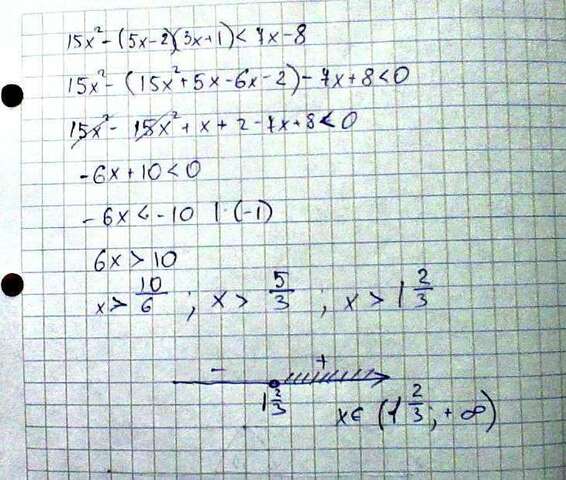 15x² - (5x-2)(3x+1) < 7x-8
15x² - (15x²+5x-6x-2) - 7x+8<0
15x² - 15x² + x + 2 - 7x+8 < 0
-6x + 10 < 0
-6x < -10 | · (-1)
6x > 10
x > 10/6 ; x > 5/3 ; x > 1 2/3
- +
1 2/3
x ∈ (1 2/3; +∞)